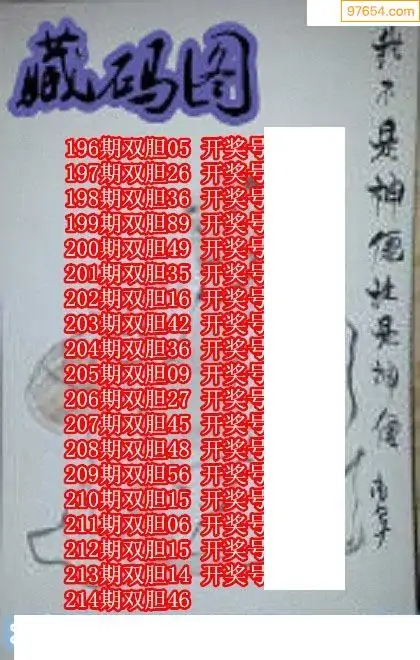 97654.com
藏码图
196期双胆05 开奖号
197期双胆26 开奖号
198期双胆36 开奖号
199期双胆89 开奖号
200期双胆49 开奖号
201期双胆35 开奖号
202期双胆16 开奖号
203期双胆42 开奖号
204期双胆36 开奖号
205期双胆09 开奖号
206期双胆27 开奖号
207期双胆45 开奖号
208期双胆48 开奖号
209期双胆56 开奖号
210期双胆15 开奖号
211期双胆06 开奖号
212期双胆15 开奖号
213期双胆14 开奖号
214期双胆46
我不是神
是神